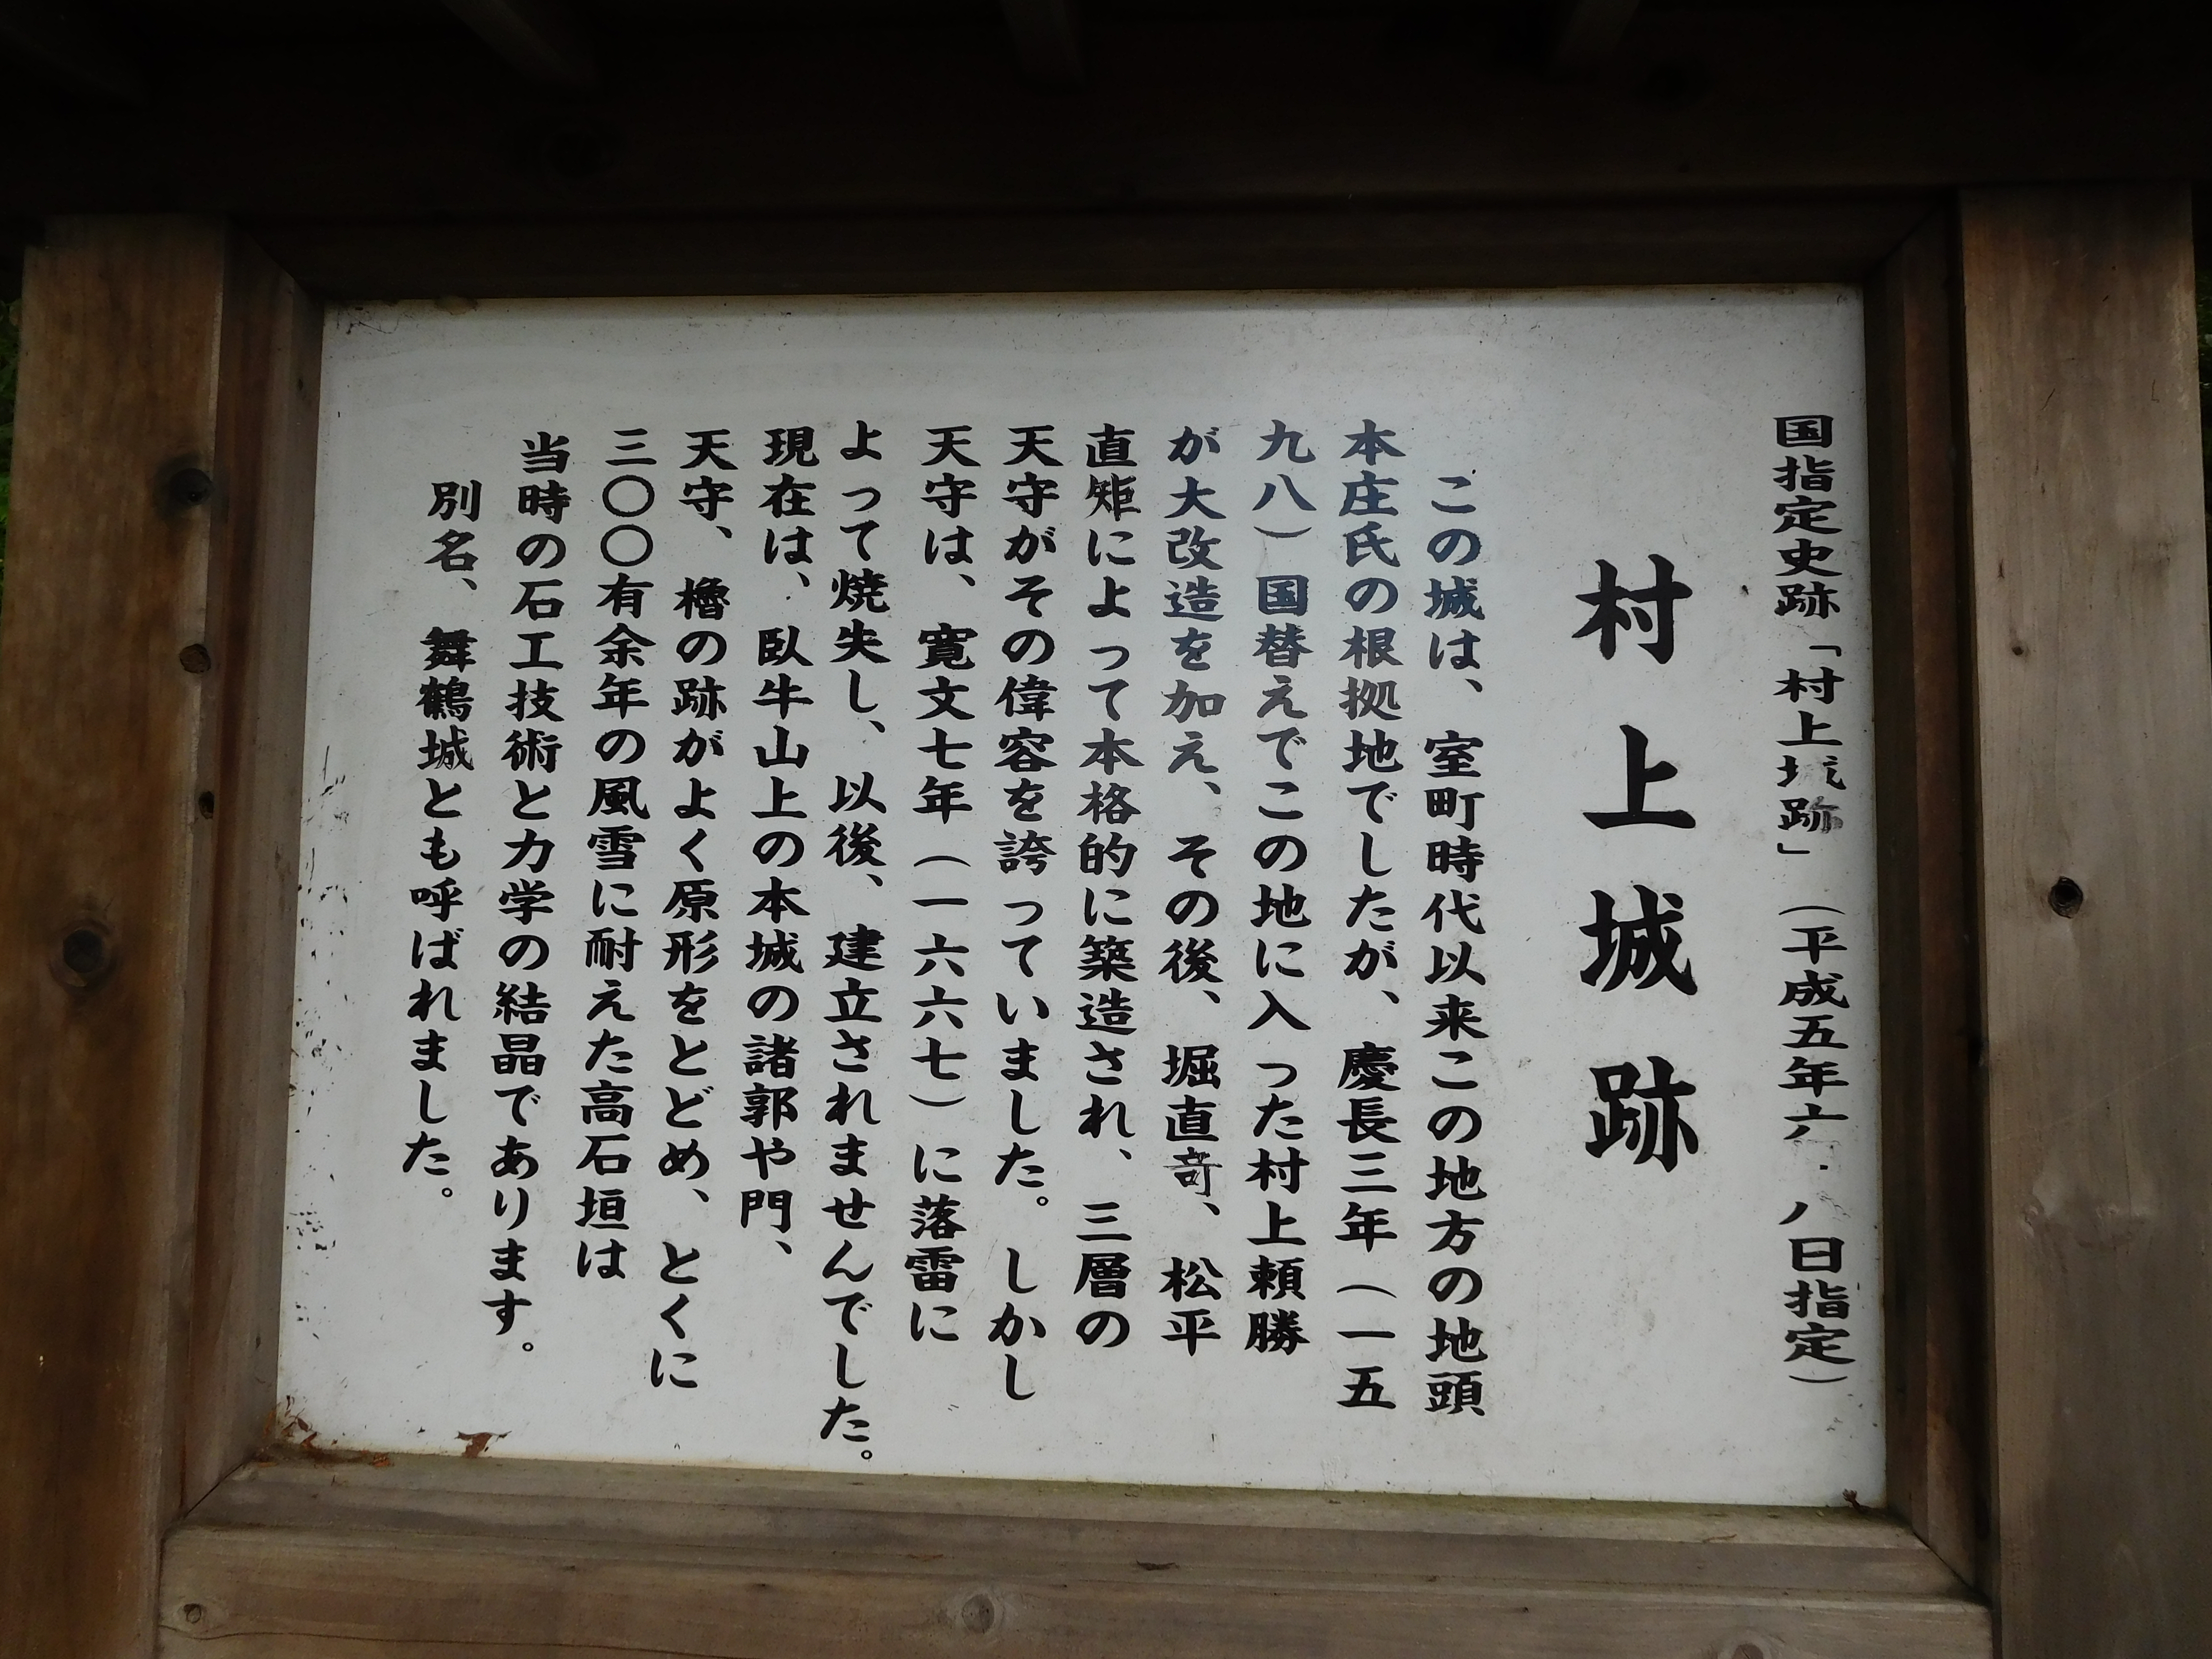 国指定史跡「村上城跡」（平成五年六 八日指定）
村上城跡
この城は、室町時代以来この地方の地頭
本庄氏の根拠地でしたが、慶長三年（一五
九八）国替えでこの地に入った村上頼勝
が大改造を加え、その後、堀直竒、松平
直矩によって本格的に築造され、三層の
天守がその偉容を誇っていました。しかし
天守は、寛文七年（一六六七）に落雷に
よって焼失し、以後、建立されませんでした。
現在は、臥牛山上の本城の諸郭や門、
天守、櫓の跡がよく原形をとどめ、とくに
三〇〇有余年の風雪に耐えた高石垣は
当時の石工技術と力学の結晶であります。
別名、舞鶴城とも呼ばれました。